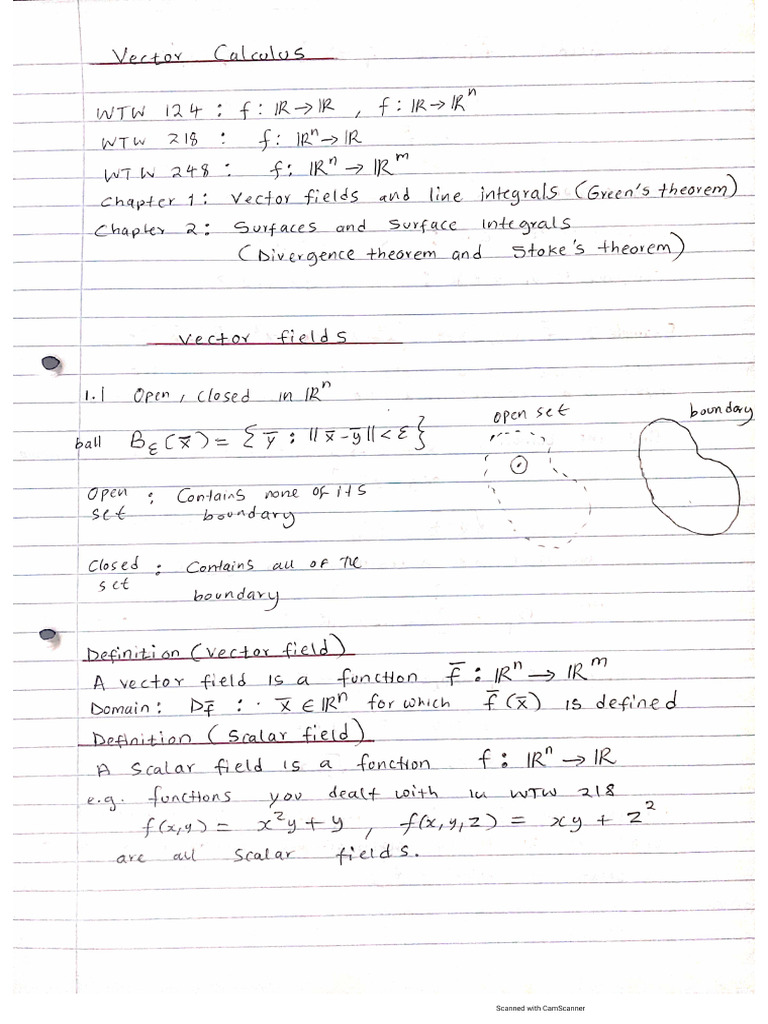 Vector Calculus
WTW 124 : f : ℝ → ℝ , f : ℝ → ℝⁿ
WTW 218 : f : ℝⁿ → ℝ
WTW 248 : f : ℝⁿ → ℝᵐ
Chapter 1 : Vector fields and line integrals (Green's theorem)
Chapter 2 : Surfaces and Surface Integrals
(Divergence theorem and Stoke's theorem)
Vector fields
1.1 Open, Closed in ℝⁿ
open set
boundary
ball B_ε(x̄) = { ȳ : ||x̄-ȳ|| < ε }
Open set : Contains none of its
boundary
Closed set : Contains all of the
boundary
Definition (Vector field)
A vector field is a function f̄ : ℝⁿ → ℝᵐ
Domain : D_f̄ : · x̄ ∈ ℝⁿ for which f̄(x̄) is defined
Definition (Scalar field)
A Scalar field is a fonction f : ℝⁿ → ℝ
e.g. functions you dealt with in WTW 218
f(x,y) = x²y + y , f(x,y,z) = xy + z²
are all scalar fields.
Scanned with CamScanner